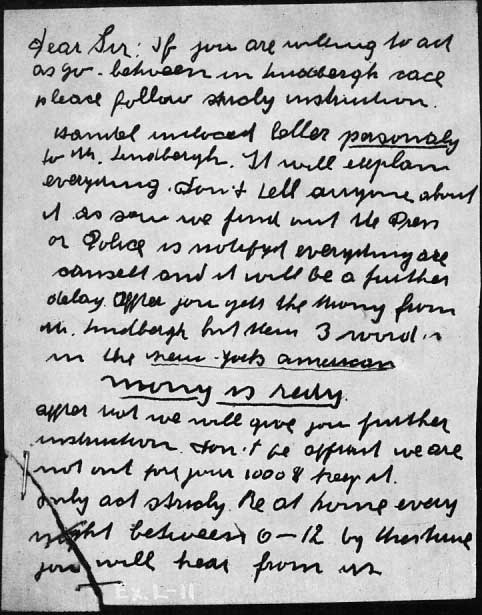 Dear Sir: If you are willing to act
as go-between in Lindbergh cace
pleace follow stricly instruction.
Handel incloced letter personaly
to Mr. Lindbergh. It will explan
everything. Don't tell anyone about
it as soon we find out the Press
or Police is notifyd everything are
cansell and it will be a further
delay. Affter you gett the mony from
Mr. Lindbergh put them 3 words
in the New-York american
mony is redy.
Affter not we will give you further
instruction. Don't be affrait we are
not out fore your 1000$ keep it.
Only act stricly. Be at home every
night between 6-12 by this time
you will hear from us
Ex. L-11